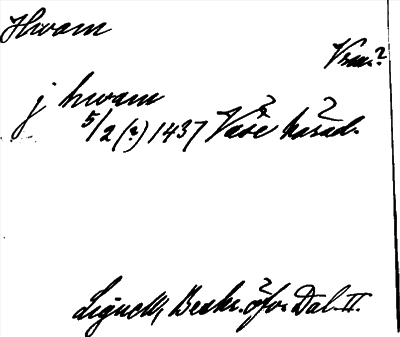 Hwam
Vsm.?
j hwam
5/2 (?) 1437 Väse härad.
Lignell, Beskr. öfver Dal. II.